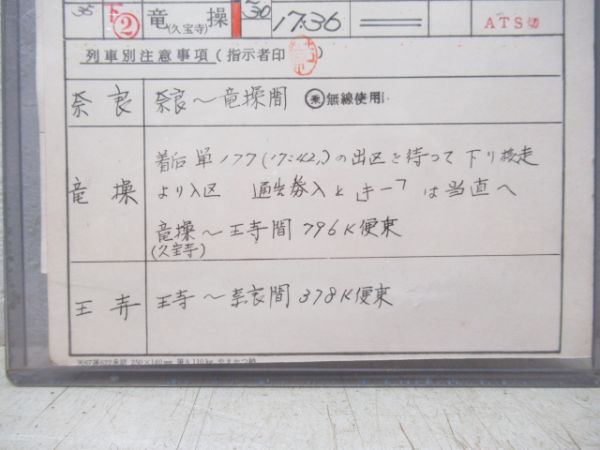 35 下② 竜(久宝寺)操 30 17:36 ATS切
列車別注意事項(指示者印 )
奈良 奈良～竜操間 ㊖無線使用
着后単177(17:42)の出区を待って下り
竜操 より入区 キーっは当直へ
竜操～王寺間 796K便乗
(久宝寺)
王寺 王寺～奈良間 378K便乗